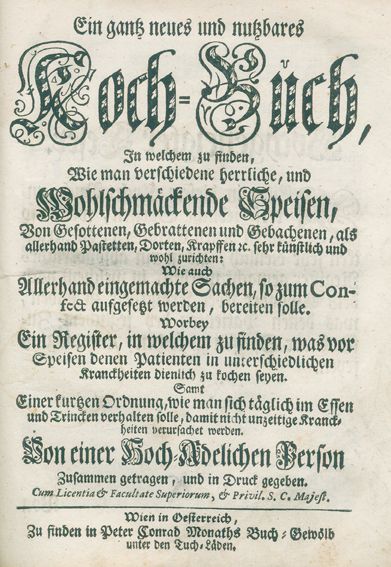 Ein gantz neues und nutzbares
Koch-Buch,
In welchem zu finden,
Wie man verschiedene herrliche, und
Wohlschmäckende Speisen,
Von Gesottenen, Gebrattenen und Gebachenen, als
allerhand Pastetten, Dorten, Krapffen ꝛc. sehr künstlich und
wohl zurichten:
Wie auch
Allerhand eingemachte Sachen, so zum Con-
fect aufgesetzt werden, bereiten solle.
Worbey
Ein Register, in welchem zu finden, was vor
Speisen denen Patienten in unterschiedlichen
Kranckheiten dienlich zu kochen seyen.
Samt
Einer kurtzen Ordnung, wie man sich täglich im Essen
und Trincken verhalten solle, damit nicht unzeitige Kranck-
heiten verursachet werden.
Von einer Hoch-Adelichen Person
Zusammen getragen, und in Druck gegeben.
Cum Licentia & Facultate Superiorum, & Privil. S. C. Majest.
Wien in Oesterreich,
Zu finden in Peter Conrad Monaths Buch-Gewölb
unter den Tuch-Läden.